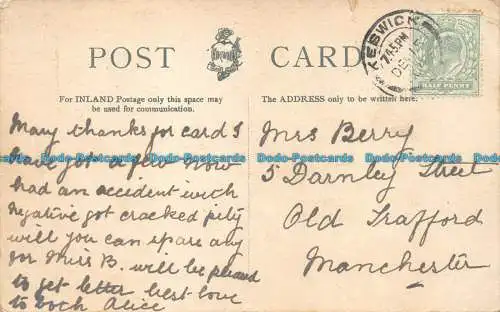 POST CARD
KESWICK
7.45 PM
DE 15
HALF PENNY
For INLAND Postage only this space may
be used for communication.
The ADDRESS only to be written here.
Many thanks for card I
have got a few now
had an accident with
negative got cracked pity
will you can spare any
for Miss B. will be pleased
to get letter best love
to both Alice
Mrs Berry
5 Darnley Street
Old Trafford
Manchester
Dodo-Postcards Dodo-Postcards Dodo-Postcards Dodo-Postcards